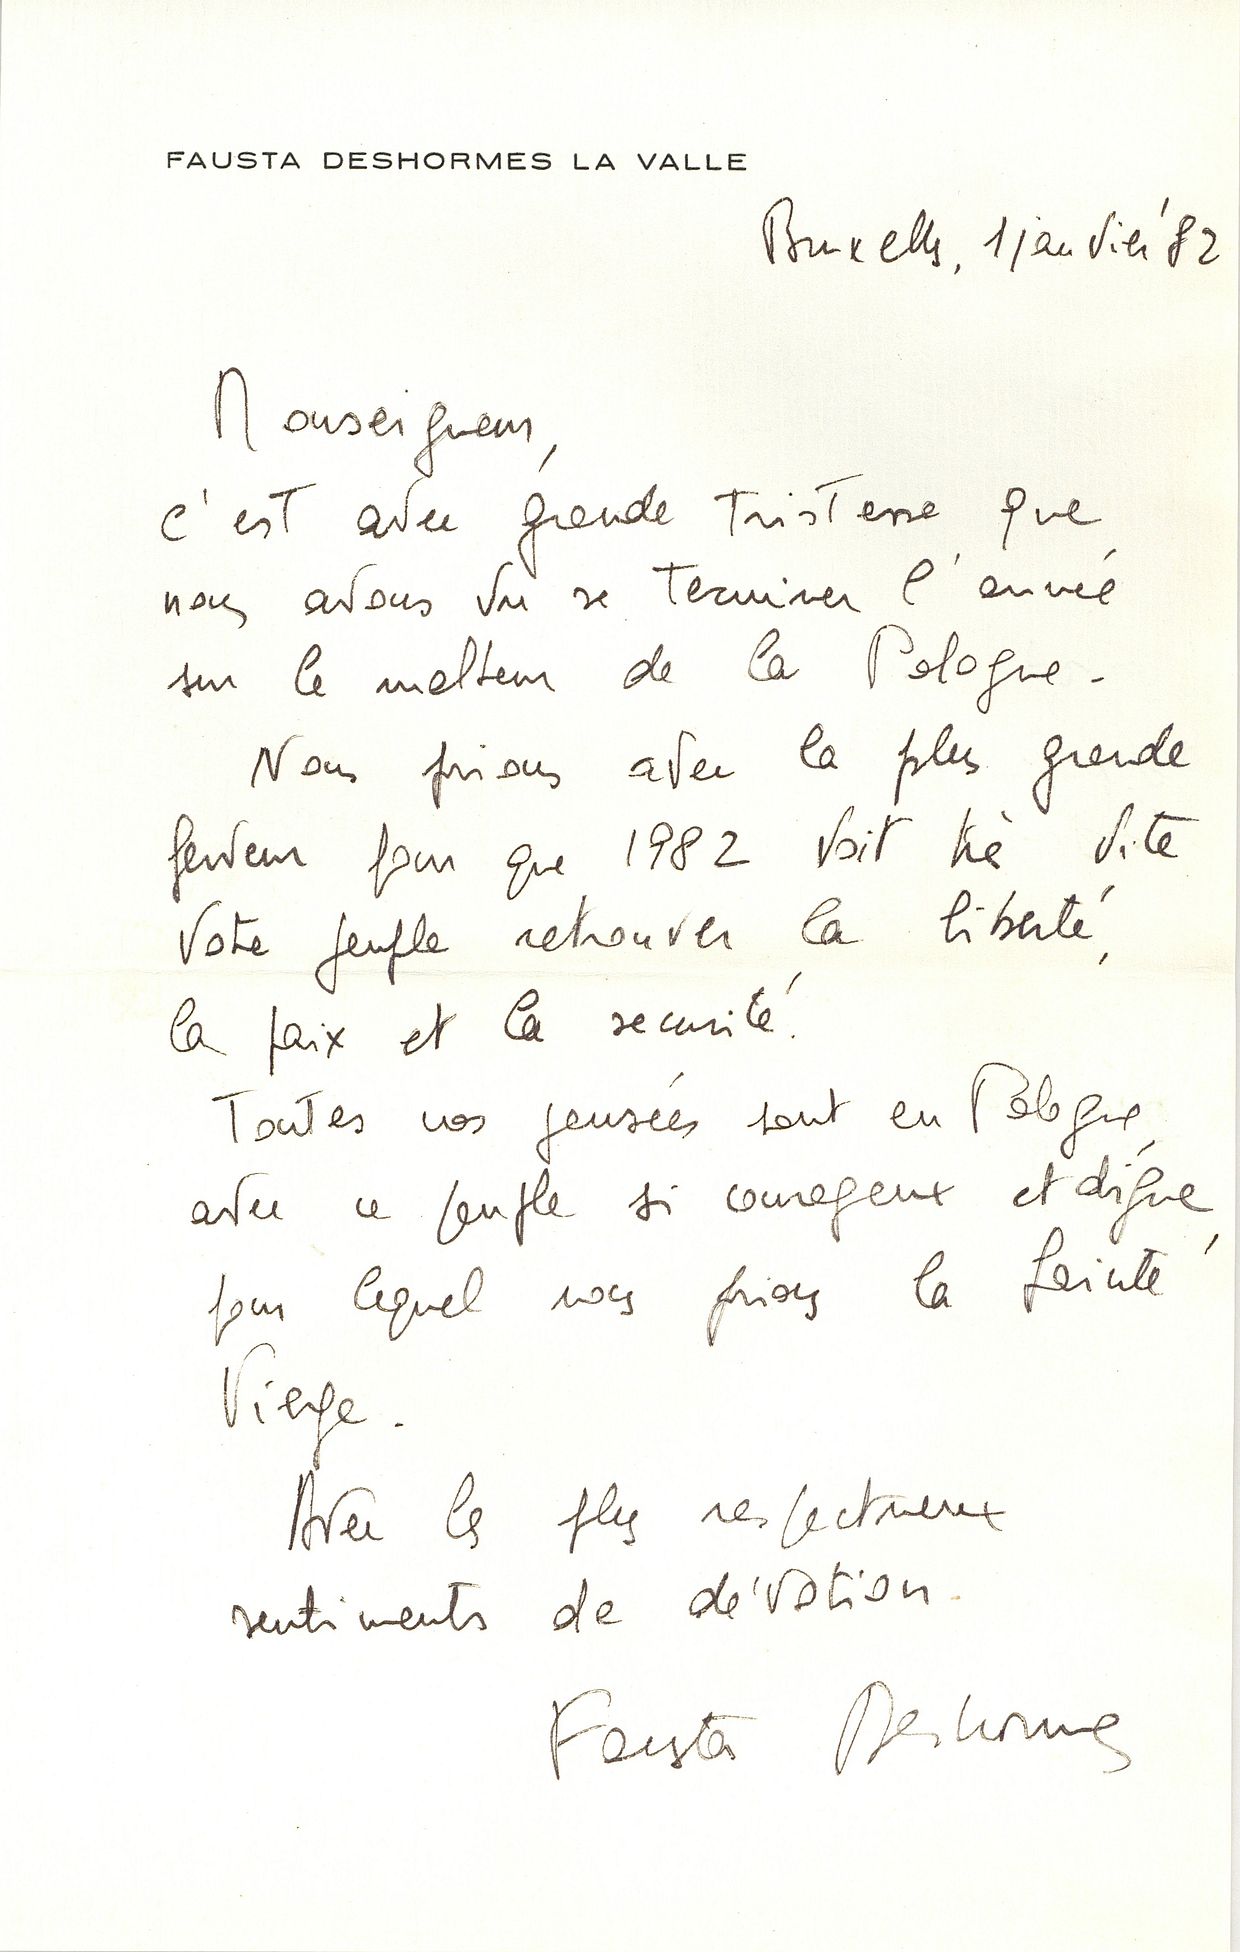 FAUSTA DESHORMES LA VALLE
Bruxelles, 1 janvier '82
Monseigneur,
c'est avec grande tristesse que
nous avons vu se terminer l'année
sur le malheur de la Pologne.
Nous prions avec la plus grande
ferveur pour que 1982 voit très vite
votre peuple retrouver la liberté,
la paix et la securité.
Toutes nos pensées sont en Pologne,
avec ce peuple si courageux et digne,
pour lequel nous prions la Sainte
Vierge.
Avec les plus respectueux
sentiments de dévotion.
Fausta Deshormes